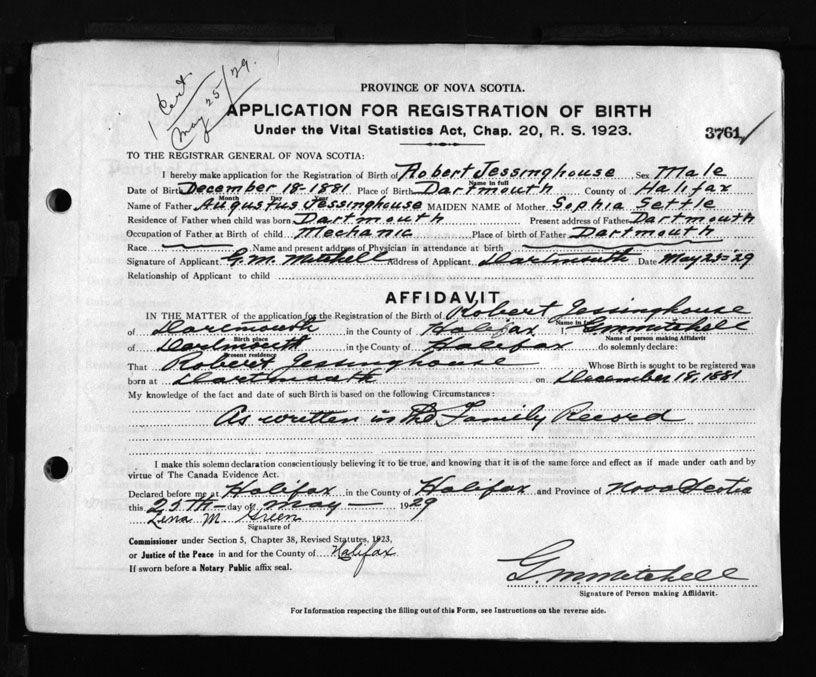 1 Cert.
May 25/29.
PROVINCE OF NOVA SCOTIA.
APPLICATION FOR REGISTRATION OF BIRTH
Under the Vital Statistics Act, Chap. 20, R. S. 1923.
3761
TO THE REGISTRAR GENERAL OF NOVA SCOTIA:
I hereby make application for the Registration of Birth of Robert Jessinghouse Sex Male
Name in full
Date of Birth December 18-1881 Place of Birth Dartmouth County of Halifax
Month Day
Name of Father Augustus Jessinghouse MAIDEN NAME of Mother Sophia Settle
Residence of Father when child was born Dartmouth Present address of Father Dartmouth
Occupation of Father at Birth of child Mechanic Place of birth of Father Dartmouth
Race Name and present address of Physician in attendance at birth
Signature of Applicant G. M. Mitchell Address of Applicant Dartmouth Date May 25-'29
Relationship of Applicant to child
AFFIDAVIT
IN THE MATTER of the application for the Registration of the Birth of Robert Jessinghouse
Name in full
of Dartmouth in the County of Halifax I G M Mitchell
Birth place Name of person making Affidavit
of Dartmouth in the County of Halifax do solemnly declare:
Present residence
That Robert Jessinghouse Whose Birth is sought to be registered was
born at Dartmouth on December 18, 1881
My knowledge of the fact and date of such Birth is based on the following Circumstances:
As written in the Family Record
I make this solemn declaration conscientiously believing it to be true, and knowing that it is of the same force and effect as if made under oath and by
virtue of The Canada Evidence Act.
Declared before me at Halifax in the County of Halifax and Province of Nova Scotia
this 25th day of May 1929
Lena M. Green
Signature of
Commissioner under Section 5, Chapter 38, Revised Statutes, 1923,
or Justice of the Peace in and for the County of Halifax
If sworn before a Notary Public affix seal.
G. M Mitchell
Signature of Person making Affidavit.
For Information respecting the filling out of this Form, see Instructions on the reverse side.